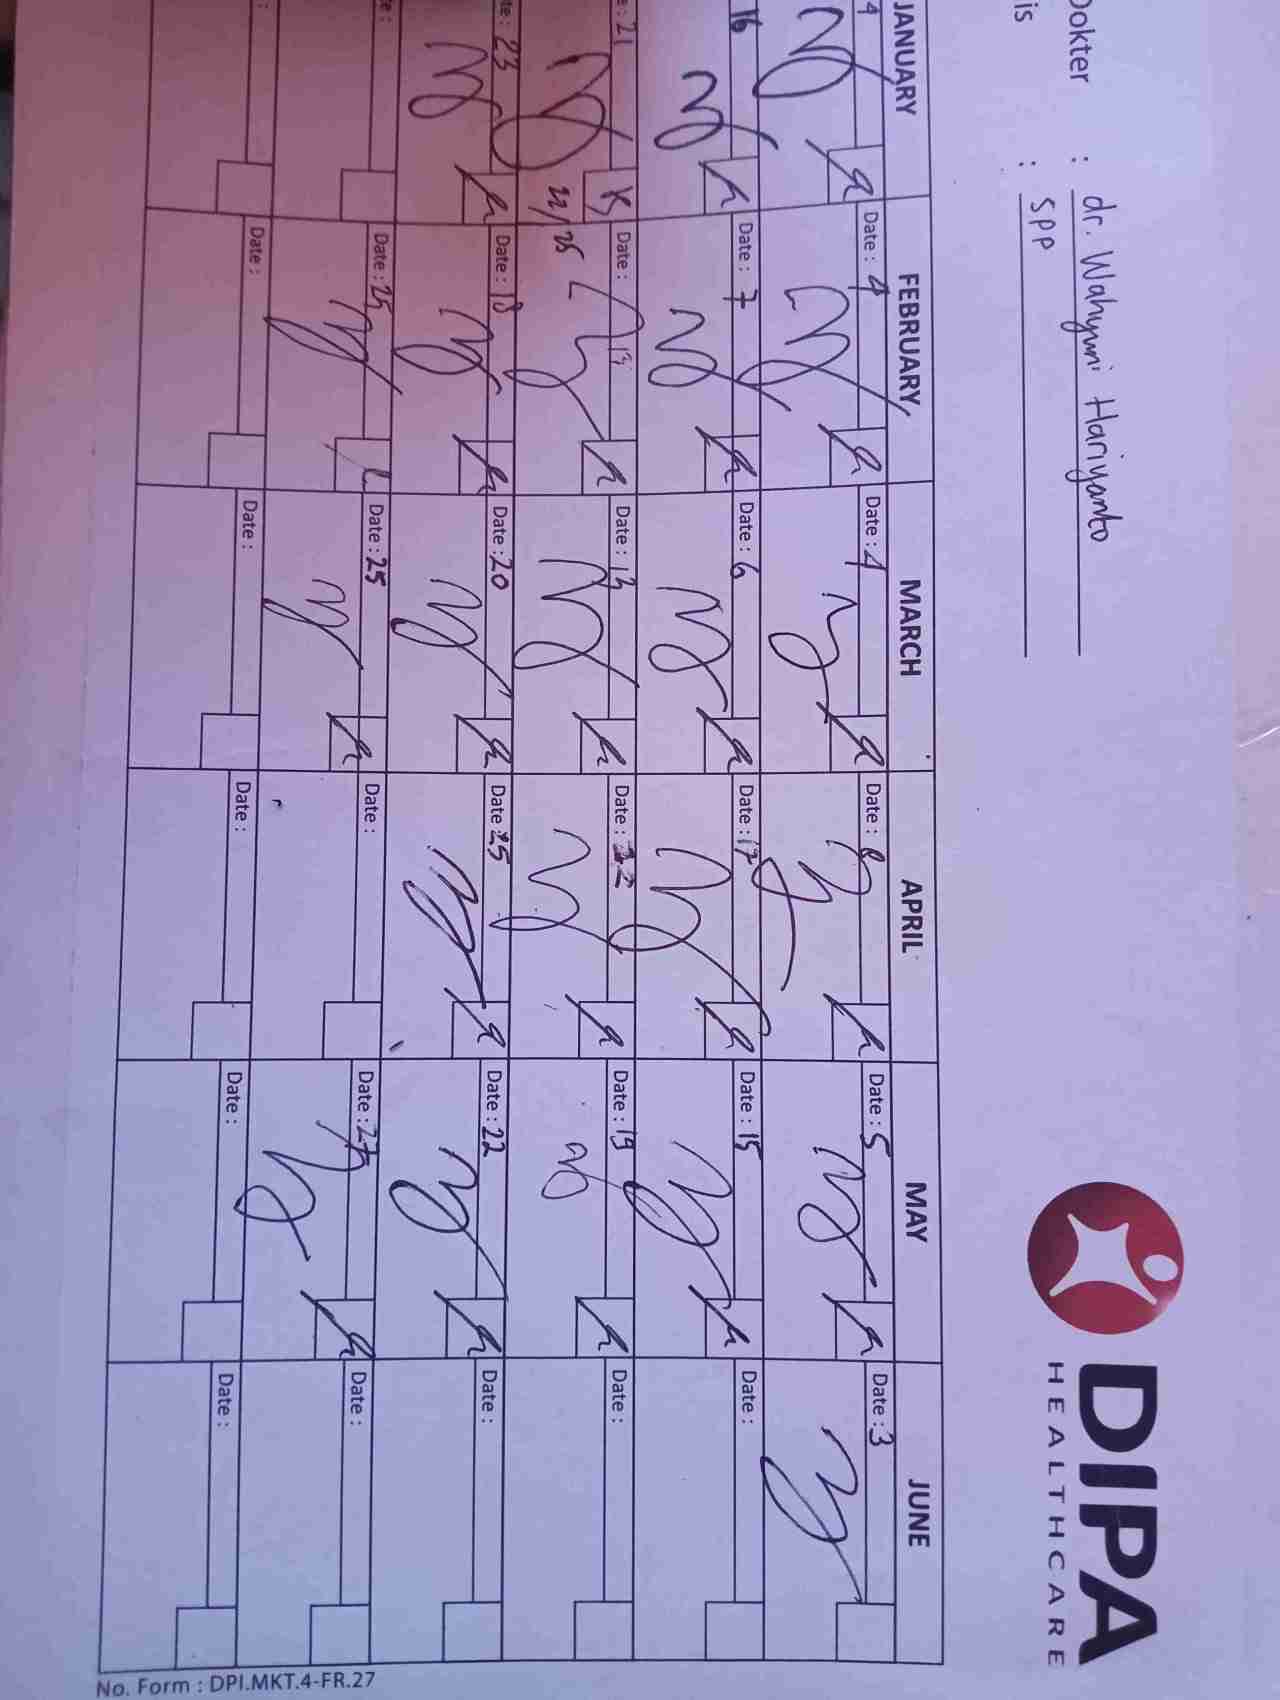 Dokter : dr. Wahyuni Hariyanto
is : SPP
DIPA
HEALTHCARE
JANUARY FEBRUARY MARCH APRIL MAY JUNE
4 Date : 4 Date : 4 Date : 8 Date : 5 Date : 3
16 Date : 7 Date : 6 Date : 17 Date : 15 Date :
e : 21 Date : 13 Date : 13 Date : 22 Date : 19 Date :
te : 23 Date : 18 Date : 20 Date : 25 Date : 22 Date :
te : Date : 25 Date : 25 Date : Date : 27 Date :
: Date : Date : Date : Date : Date :
No. Form : DPI.MKT.4-FR.27